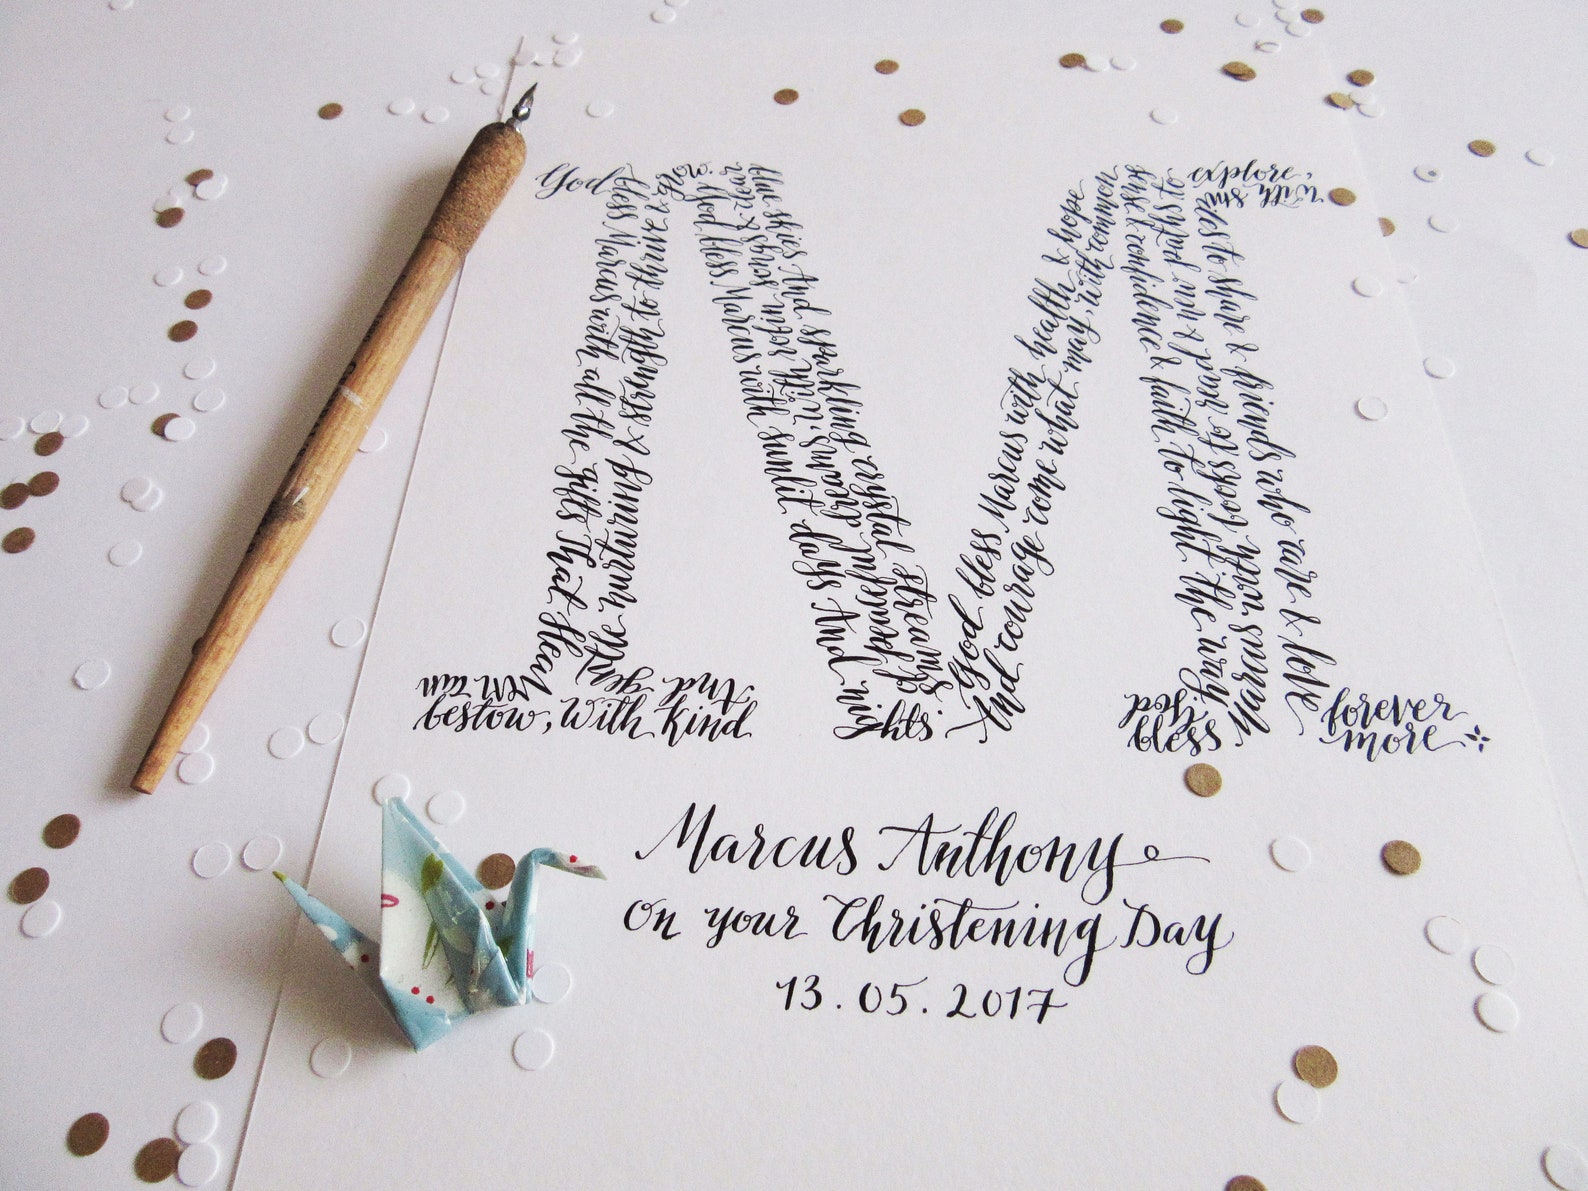 God
bless Marcus with all the gifts That Hea
ven can
bestow, With kind
And
gentle nurturing & strength to thrive & grow.
God bless Marcus with sunlit days And
peaceful dreams, With robin songs & clear
blue skies And sparkling crystal streams.
God bless Marcus with health & hope
And courage come what may, With common
sense & confidence & faith to light the way.
God
bless
Marcus with books to read & new paths to
explore,
With smi
les to share & friends who care & love
forever
more
Marcus Anthony
on your Christening Day
13.05.2017